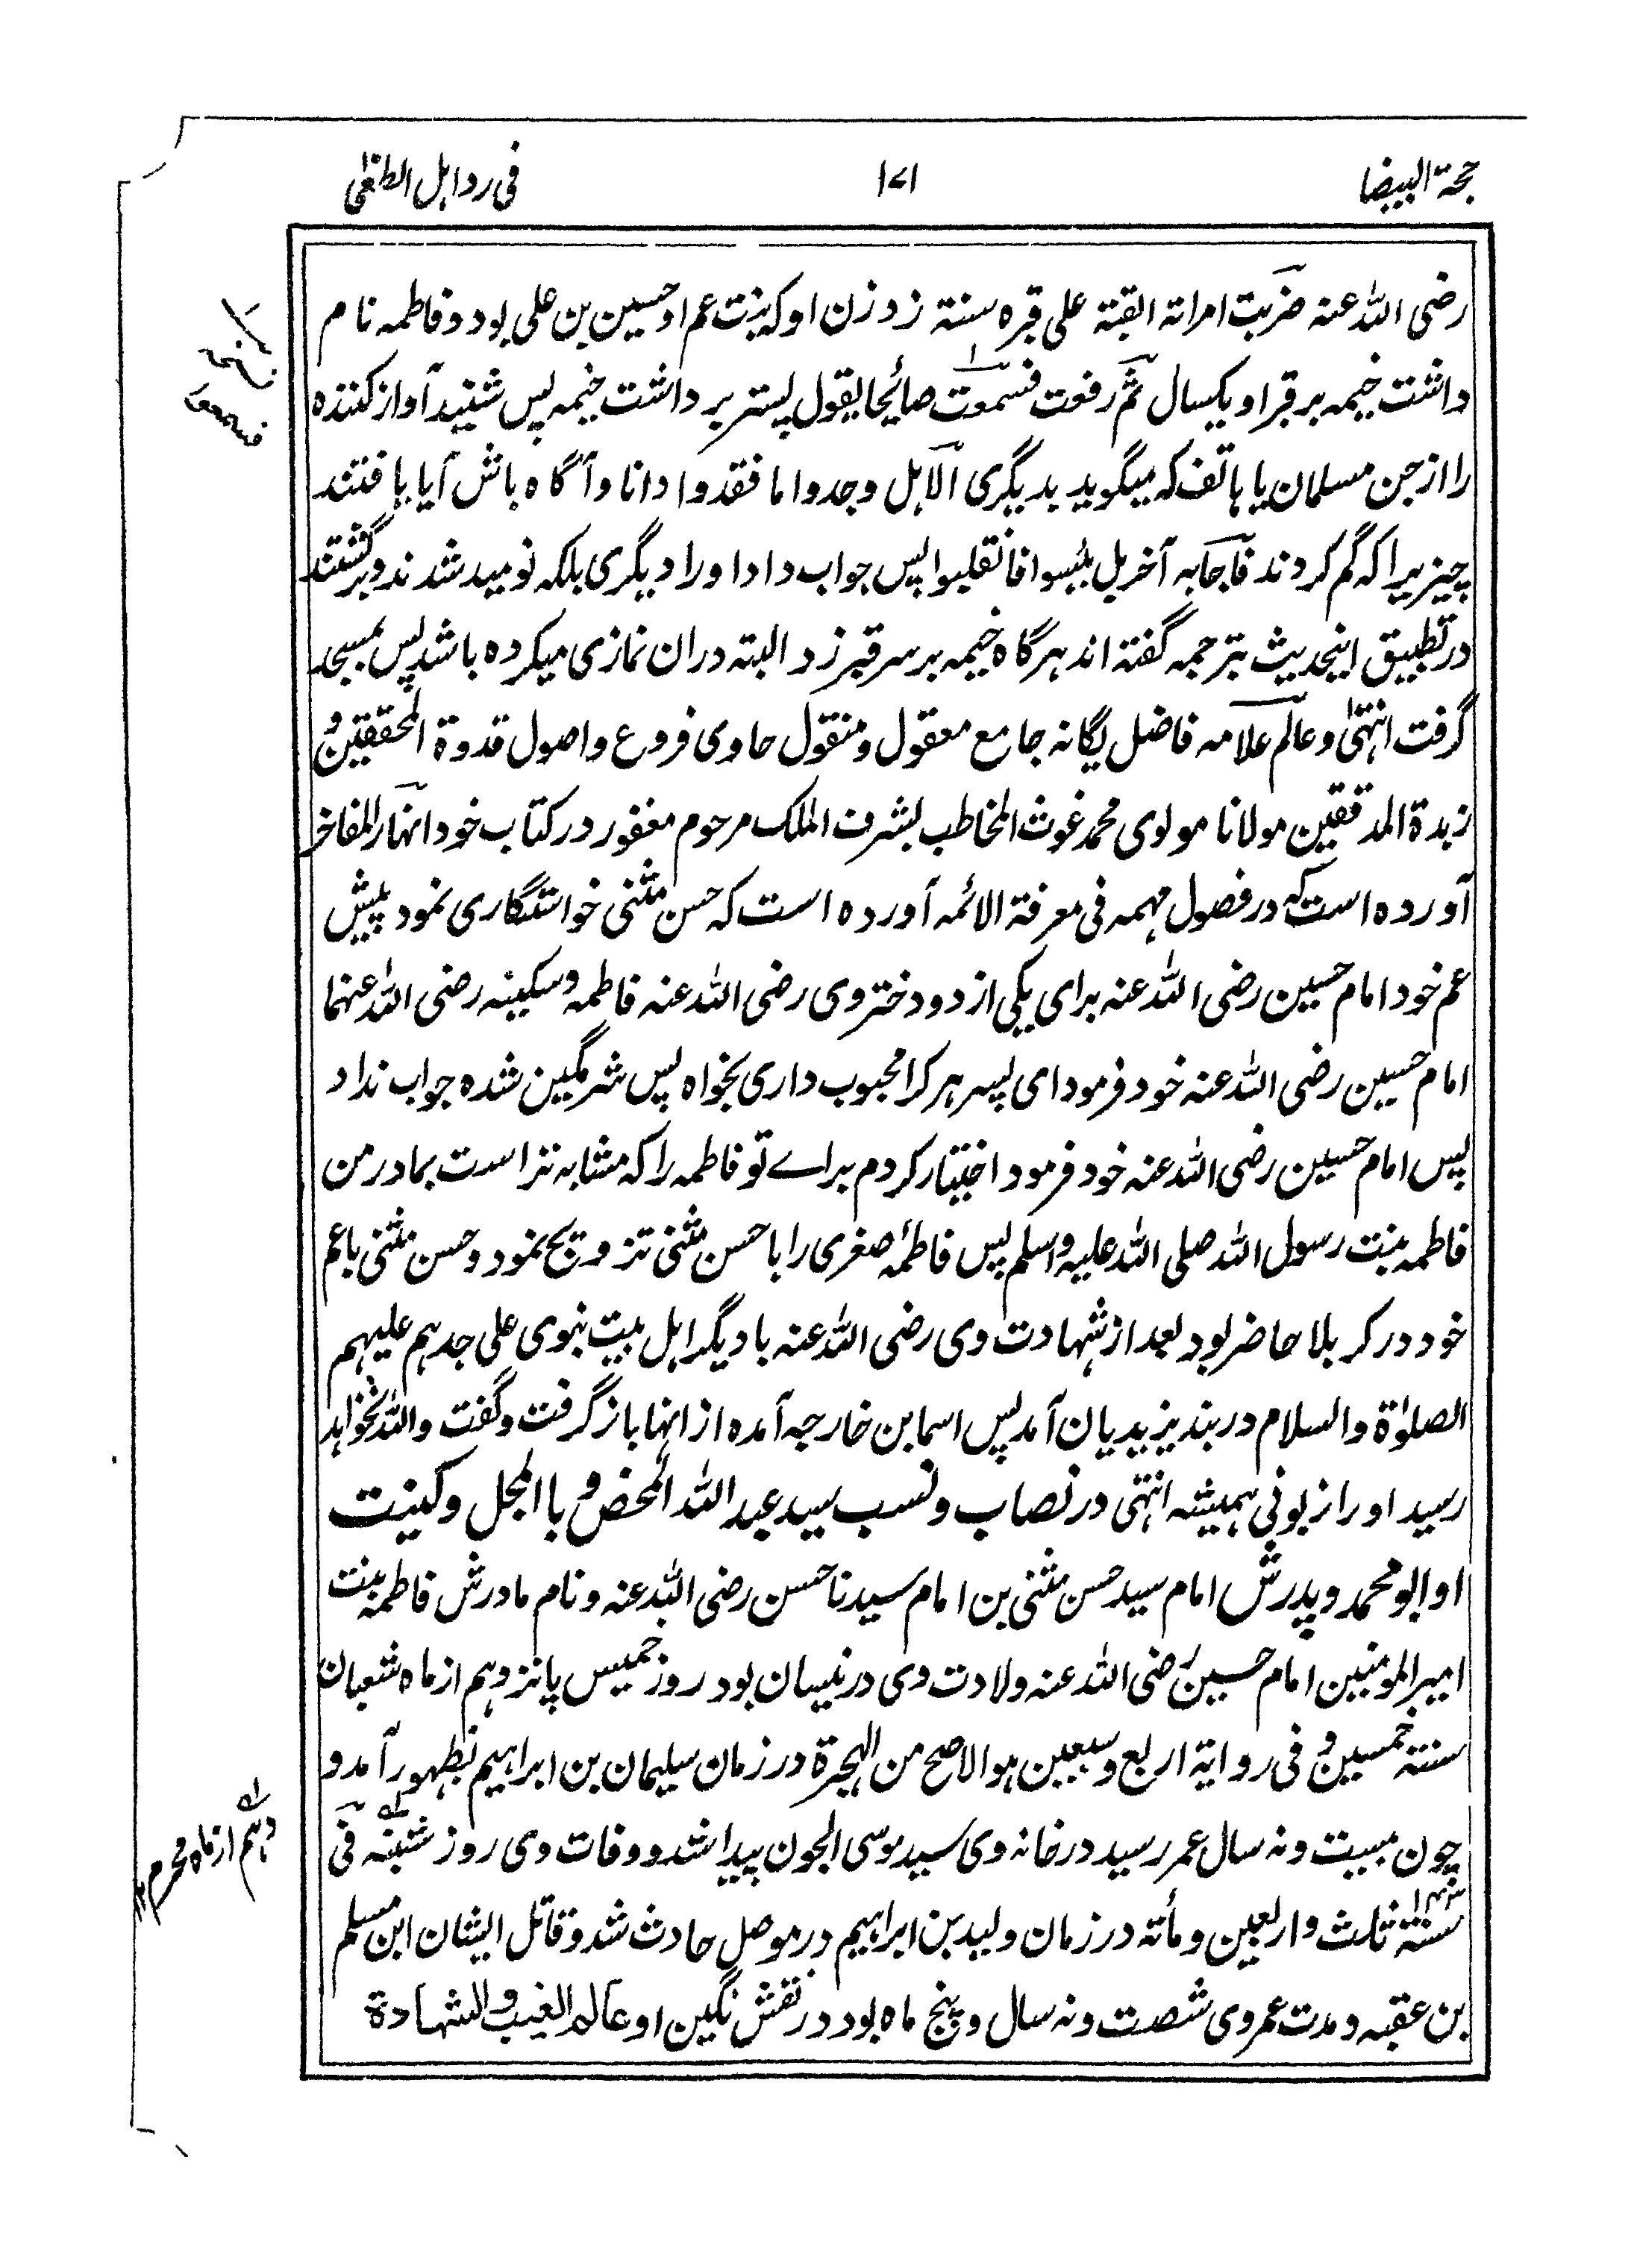 حجة البیضا
۱۷۱
فی رد اہل الطغی
رضی اللہ عنہ ضربت امراتہ القبة علی قبرہ سنة زد زن او کہ بنت عم او حسین بن علی بود و فاطمہ نام
داشت خیمہ بر قبر او یکسال ثم رفعت فسموت صائحا یقول پستر بر داشت خیمہ پس شنید آواز کنندہ
را از جن مسلمان یا ہاتف کہ میگوید بدیگری الا ہل وجدوا ما فقدوا دانا و آگاہ باش آیا یافتند
چیزیرا کہ گم کردند فاجابہ آخر بل یئسوا فانقلبوا پس جواب داد او را دیگری بلکہ نومید شدند و برگشتند
در تطبیق اینحدیث بترجمہ گفتہ اند ہرگاہ خیمہ بر سر قبر زد البتہ دران نمازی میکردہ باشد پس بمسجد
گرفت انتہیٰ و عالم علامہ فاضل یگانہ جامع معقول و منقول حاوی فروع و اصول قدوة المحققین و
زبدة المدققین مولانا مولوی محمد غوث المخاطب بشرف الملک مرحوم مغفور در کتاب خود انہار المفاخر
آوردہ است کہ در فصول مہمہ فی معرفة الائمہ آوردہ است کہ حسن مثنی خواستگاری نمود پیش
عم خود امام حسین رضی اللہ عنہ برای یکی از دو دختر وی رضی اللہ عنہ فاطمہ و سکینہ رضی اللہ عنہما
امام حسین رضی اللہ عنہ خود فرمود ای پسر ہر کرا محبوب داری بخواہ پس شرمگین شدہ جواب نداد
پس امام حسین رضی اللہ عنہ خود فرمود اختیار کردم براے تو فاطمہ را کہ مشابہ تر است بمادر من
فاطمہ بنت رسول اللہ صلی اللہ علیہ واسلم پس فاطمۂ صغری را با حسن مثنی تزویج نمود و حسن مثنی با عم
خود در کربلا حاضر بود بعد از شہادت وی رضی اللہ عنہ با دیگر اہل بیت نبوی علی جدہم علیہم
الصلوٰة والسلام در بند یزیدیان آمد پس اسما بن خارجہ آمدہ از انہا باز گرفت و گفت واللہ نخواہد
رسید او را زبونی ہمیشہ انتہی در نصاب و نسب سید عبد اللہ المحض و با المجل و کنیت
او ابو محمد و پدرش امام سید حسن مثنی بن امام سیدنا حسن رضی اللہ عنہ و نام مادرش فاطمہ بنت
امیر المومنین امام حسین رضی اللہ عنہ ولادت وی در نیسان بود روز خمیس پانزدہم از ماہ شعبان
سنتہ خمسین و فی روایة اربع و سبعین ہو الاصح من الہجرة در زمان سلیمان بن ابراہیم بظہور آمد و
چون بیست و نہ سال عمر رسید در خانہ وی سید موسی الجون پیدا شد و وفات وی روز شنبہ فی
سنتہ ثلث و اربعین و مأتہ در زمان ولید بن ابراہیم در موصل حادث شد و قاتل ایشان ابن مسلم
بن عقبہ و مدت عمر وی شصت و نہ سال و پنج ماہ بود در نقش نگین او عالم الغیب و الشہادة
نسخہ
فسمعوا
دہم از ماہ محرم ۱۲